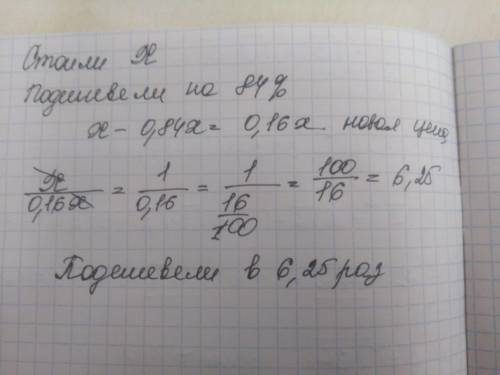 Стоили x
Подешевели на 84%
x - 0,84x = 0,16x новая цена
x/0,16x = 1/0,16 = 1/(16/100) = 100/16 = 6,25
Подешевели в 6,25 раз